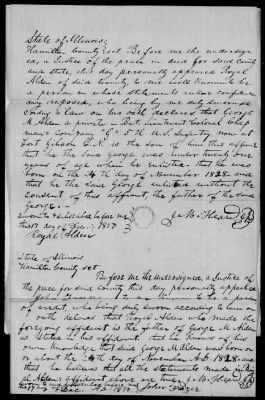 State of Illinois;
Hamilton County Sct Before me the undersign-
ed, a Justice of the peace in and for said County
and state, this day personally appeared Royal
Alden of said County to me well known to be
a person in whose statements entire confidence
may reposed, who being by me duly sworn ac-
cording to law on his oath declares that George
M. Alden a private in Bvt Lieutenant Colonel
man's Company "G" 5th U.S. Infantry now at
Fort Gibson C.N. is the son of him this affiant
that he the said george was under twenty one
years of age when he enlisted that he was
born on the 24th day of November 1828 and
that he the said George enlisted without the
consent of this affiant, the father of the said
George.
Sworn to & subscribed before me
this 17 day of Dec. 1850
Royal Alden
State of Illinois
Hamilton County Sct.
Before me the undersigned, a Justice of
the peace for said County this day personally appeared
to me known to be a person
of credit who being duly sworn according to law on
oath declares that Royal Alden who made the
foregoing affidavit is the father of George M Alden
as states in his affidavit, that he knows of his
own knowledge that said George M Alden was born on
or about the 24th day of November A.D. 1828 and
that he believes that all the statements made by Roy
al Alden's affidavit above are true.